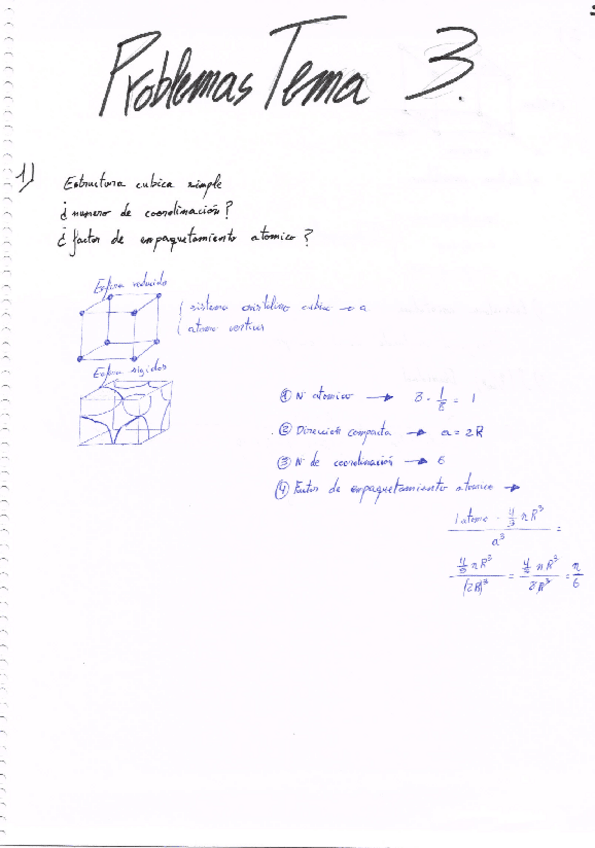 Problemas Tema 3.
1)
Estructura cubica simple
¿numero de coordinación?
¿factor de empaquetamiento atomico?
Esfera reducida
sistema cristalino cubico → a
atomo vertices
Esfera rigidas
① Nº atomico → 8 · 1/8 = 1
② Dirección compacta → a = 2R
③ Nº de coordinación → 6
④ Factor de empaquetamiento atomico →
1 atomo · 4/3 π R³ / a³ =
4/3 π R³ / (2R)³ = 4/3 π R³ / 8R³ = π/6